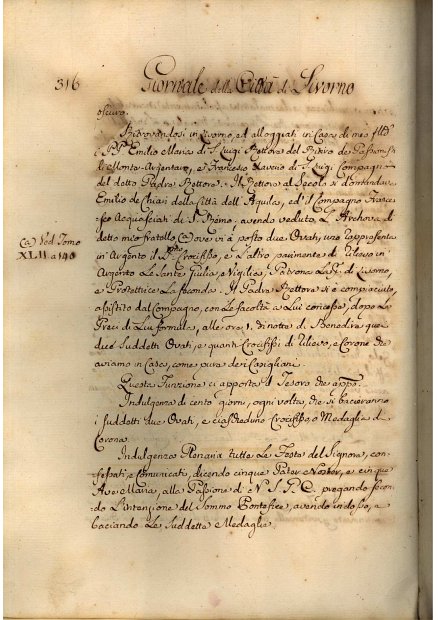 316 Giornale della Città di Livorno
oscuro.
Ritrovandosi in Livorno, ed alloggiati in Casa di mio
i PP. Emilio Maria di S. Luigi Rettore del Ritiro de Passionisti
di Monte Argentaro, e Francesco Xaverio di S. Luigi Compagno
del detto Padre Rettore. Il Rettore al Secolo si domandava
Emilio de Chiari della Città dell' Aquila, ed il Compagno Frances-
co Acquasciati di S. Remo. avendo veduto L'
detto mio fratello (a) ove vi à posto due Ovati, uno rappresenta
(a) Ved. Tomo
XLII a 140
in Argento il Crocifisso, e l'altro parimente di rilievo in
Argento Le Sante Giulia, e Vigilia, Patrona La di Livorno,
e Protettrice La seconda. Il Padre Rettore si è compiaciuto
assistito dal Compagno, con Le facoltà a Lui concesse, dopo Le
Preci di Lui formula, alle ore 1. di notte di Benedire quei
due Suddetti Ovati, e quanti Crocifissi di rilievo, e Corone che
aviamo in Casa, come pure dei Capigliani.
Questa Funzione ci apporta il Tesoro che app.
Indulgenza di cento giorni, ogni volta, che si bacieranno
i suddetti due Ovati, e ciascheduno Crocifisso, o Medaglia, o
Corona.
Indulgenza Plenaria tutte Le Feste del Signore, con-
fessati, e Comunicati, dicendo cinque Pater Noster, e cinque
Ave Maria, alla Passione di N. S. G. C. pregando secon-
do L'intenzione del Sommo Pontefice, avendo indosso, o
baciando Le Suddette Medaglie.